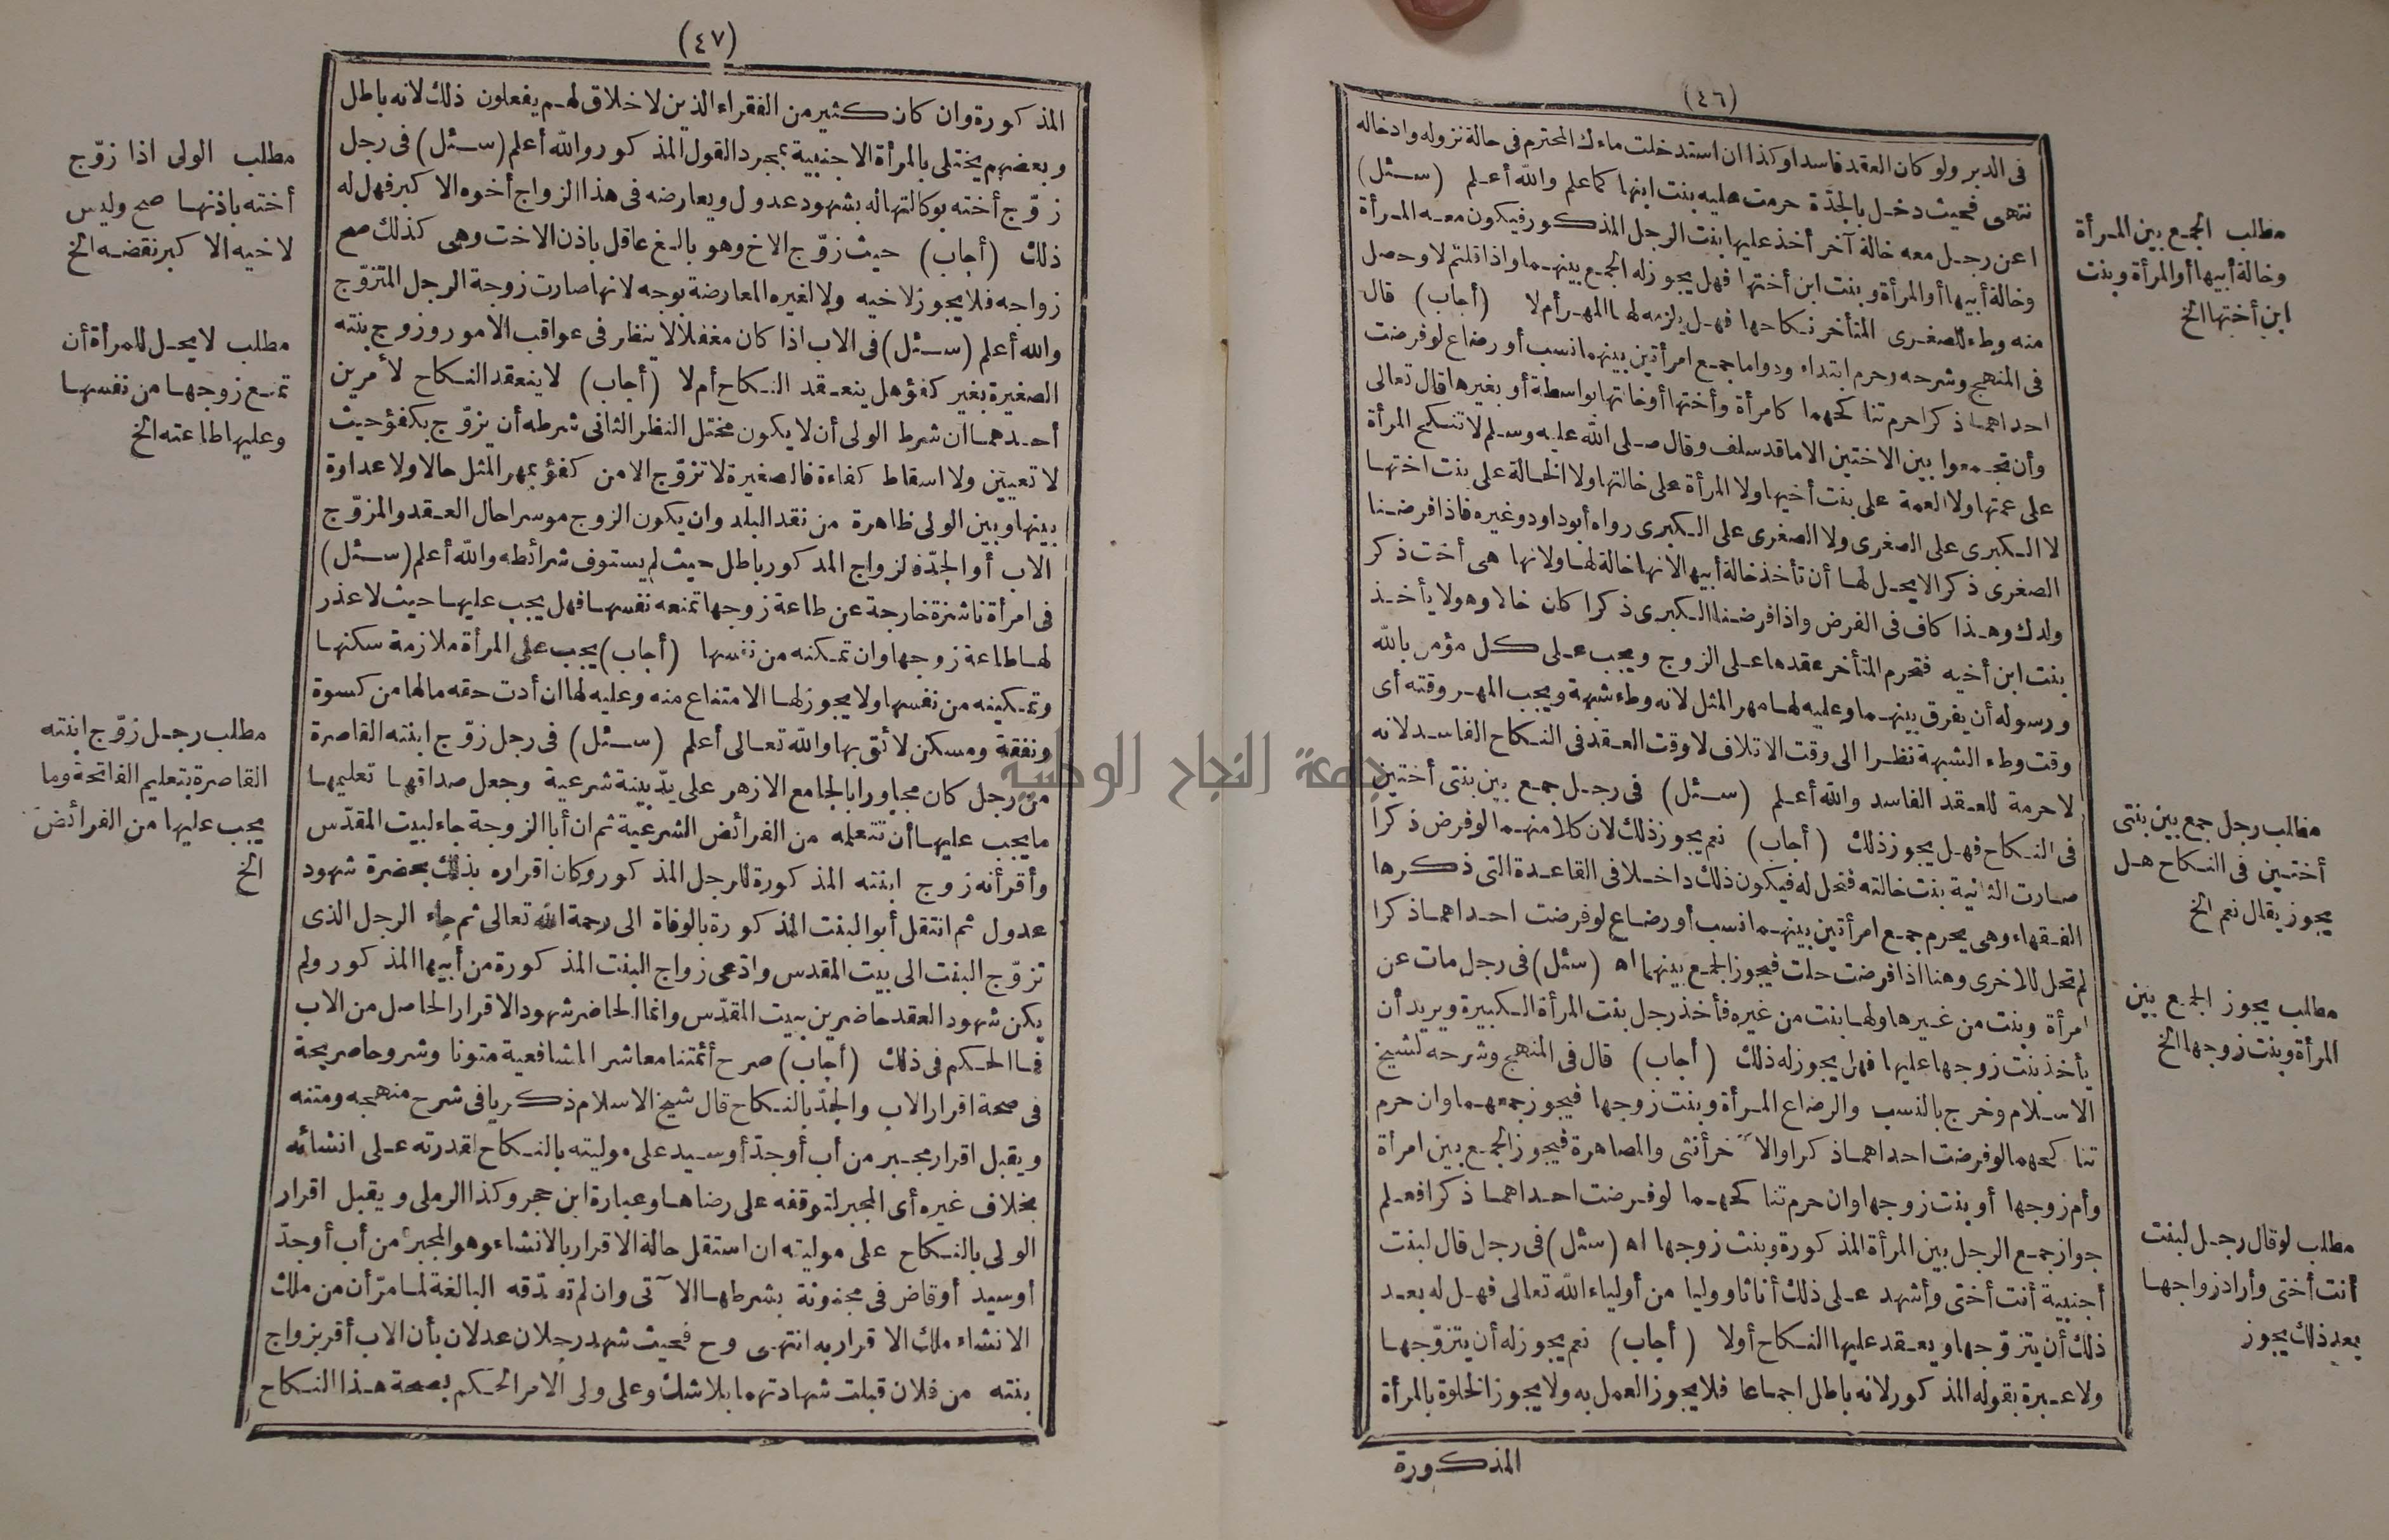 (٤٦)
فى الدبر ولو كان العقد فاسدا وكذا ان استدخلت ماءك المحترم فى حالة نزوله وادخاله
نتهى فحيث دخل بالجدّة حرمت عليه بنت ابنها كما علم والله أعلم (سئل)
اعن رجل معه خالة آخر أخذ عليها بنت الرجل المذكور فيكون معه المرأة
وخالة أبيها أو المرأة وبنت ابن أختها فهل يجوز له الجمع بينهما واذا قلتم لا وحصل
منه وطء للصغرى المتأخر نكاحها فهل يلزمه لها المهر أم لا (أجاب) قال
فى المنهج وشرحه وحرم ابتداء ودواما جمع امرأتين بينهما نسب أو رضاع لو فرضت
احداهما ذكرا حرم تناكحهما كامرأة وأختها أو خالتها بواسطة أو بغيرها قال تعالى
وأن تجمعوا بين الاختين الا ما قد سلف وقال صلى الله عليه وسلم لا تنكح المرأة
على عمتها ولا العمة على بنت أخيها ولا المرأة على خالتها ولا الخالة على بنت اختها
لا الكبرى على الصغرى ولا الصغرى على الكبرى رواه أبو داود وغيره فاذا فرضنا
الصغرى ذكرا لا يحل لها أن تأخذ خالة أبيها لانها خالة لها ولانها هى أخت ذكر
ولدك وهذا كاف فى الفرض واذا فرضنا الكبرى ذكرا كان خالا وهو لا يأخذ
بنت ابن أخيه فتحرم المتأخر عقدها على الزوج ويجب على كل مؤمن بالله
ورسوله أن يفرق بينهما وعليه لها مهر المثل لانه وطء شبهة ويجب المهر وقته أى
وقت وطء الشبهة نظرا الى وقت الاتلاف لا وقت العقد فى النكاح الفاسد لانه
لا حرمة للعقد الفاسد والله أعلم (سئل) فى رجل جمع بين بنتى أختين
فى النكاح فهل يجوز ذلك (أجاب) نعم يجوز ذلك لان كلا منهما لو فرض ذكرا
صارت الثانية بنت خالته فتحل له فيكون ذلك داخلا فى القاعدة التى ذكرها
الفقهاء وهى يحرم جمع امرأتين بينهما نسب أو رضاع لو فرضت احداهما ذكرا
لم تحل للاخرى وهنا اذا فرضت حلت فيجوز الجمع بينهما اه (سئل) فى رجل مات عن
امرأة وبنت من غيرها ولها بنت من غيره فأخذ رجل بنت المرأة الكبيرة ويريد أن
يأخذ بنت زوجها عليها فهل يجوز له ذلك (أجاب) قال فى المنهج وشرحه لشيخ
الاسلام وخرج بالنسب والرضاع المرأة وبنت زوجها فيجوز جمعهما وان حرم
تناكحهما لو فرضت احداهما ذكرا والآخر أنثى والمصاهرة فيجوز الجمع بين امرأة
وأم زوجها أو بنت زوجها وان حرم تناكحهما لو فرضت احداهما ذكرا فعلم
جواز جمع الرجل بين المرأة المذكورة وبنت زوجها اه (سئل) فى رجل قال لبنت
أجنبية أنت أختى وأشهد على ذلك أناثا ووليا من أولياء الله تعالى فهل له بعد
ذلك أن يتزوّجها ويعقد عليها النكاح أولا (أجاب) نعم يجوز له أن يتزوّجها
ولا عبرة بقوله المذكور لانه باطل اجماعا فلا يجوز العمل به ولا يجوز الخلوة بالمرأة
المذكورة
مطلب الجمع بين المرأة
وخالة أبيها أو المرأة وبنت
ابن أختها الخ
مطلب رجل جمع بين بنتى
أختين فى النكاح هل
يجوز يقال نعم الخ
مطلب يجوز الجمع بين
المرأة وبنت زوجها الخ
مطلب لو قال رجل لبنت
أنت أختى وأراد زواجها
بعد ذلك يجوز
(٤٧)
المذكورة وان كان كثير من الفقراء الذين لا خلاق لهم يفعلون ذلك لانه باطل
وبعضهم يختلى بالمرأة الاجنبية بمجرد القول المذكور والله أعلم (سئل) فى رجل
زوّج أخته بوكالتها له بشهود عدول ويعارضه فى هذا الزواج أخوه الاكبر فهل له
ذلك (أجاب) حيث زوّج الاخ وهو بالغ عاقل باذن الاخت وهى كذلك صح
زواجه فلا يجوز لاخيه ولا لغيره المعارضة بوجه لانها صارت زوجة الرجل المتزوّج
والله أعلم (سئل) فى الاب اذا كان مغفلا لا ينظر فى عواقب الامور وزوج بنته
الصغيرة بغير كفؤ هل ينعقد النكاح أم لا (أجاب) لا ينعقد النكاح لأمرين
أحدهما ان شرط الولى أن لا يكون مختل النظر الثانى شرطه أن يزوّج بكفؤ حيث
لا تعيين ولا اسقاط كفاءة فالصغيرة لا تزوّج الا من كفؤ بمهر المثل حالا ولا عداوة
بينها وبين الولى ظاهرة من نقد البلد وان يكون الزوج موسرا حال العقد والمزوّج
الاب أو الجدّ فالزواج المذكور باطل حيث لم يستوف شرائطه والله أعلم (سئل)
فى امرأة ناشزة خارجة عن طاعة زوجها تمنعه نفسها فهل يجب عليها حيث لا عذر
لها طاعة زوجها وان تمكنه من نفسها (أجاب) يجب على المرأة ملازمة سكنها
وتمكينه من نفسها ولا يجوز لها الامتناع منه وعليه لها ان أدت حقه مالها من كسوة
ونفقة ومسكن لائق بها والله تعالى أعلم (سئل) فى رجل زوّج ابنته القاصرة
من رجل كان مجاورا بالجامع الازهر على يدّ بينة شرعية وجعل صداقها تعليمها
ما يجب عليها أن تتعلمه من الفرائض الشرعية ثم ان أبا الزوجة جاء لبيت المقدّس
وأقر أنه زوج ابنته المذكورة للرجل المذكور وكان اقراره بذلك بحضرة شهود
عدول ثم انتقل أبو البنت المذكورة بالوفاة الى رحمة الله تعالى ثم جاء الرجل الذى
تزوّج البنت الى بيت المقدس وادّعى زواج البنت المذكورة من أبيها المذكور ولم
يكن شهود العقد حاضرين ببيت المقدّس وانما الحاضر شهود الاقرار الحاصل من الاب
فما الحكم فى ذلك (أجاب) صرح أئمتنا معاشر الشافعية متونا وشروحا صريحة
فى صحة اقرار الاب والجدّ بالنكاح قال شيخ الاسلام ذكريا فى شرح منهجه ومتنه
ويقبل اقرار مجبر من أب أوجدّ أو سيد على موليته بالنكاح لقدرته على انشائه
بخلاف غيره أى المجبر لتوقفه على رضاها وعبارة ابن حجر وكذا الرملى ويقبل اقرار
الولى بالنكاح على موليته ان استقل حالة الاقرار بالانشاء وهو المجبر من أب أوجدّ
أو سيد أو قاض فى مجنونة بشرطها الآتى وان لم تصدّقه البالغة لما مرّ أن من ملك
الانشاء ملك الاقرار به انتهى وح فحيث شهد رجلان عدلان بأن الاب أقر بزواج
بنته من فلان قبلت شهادتهما بلا شك وعلى ولى الامر الحكم بصحة هذا النكاح
مطلب الولى اذا زوّج
أخته باذنها صح وليس
لاخيه الاكبر نقضه الخ
مطلب لا يحل للمرأة أن
تمنع زوجها من نفسها
وعليها اطاعته الخ
مطلب رجل زوّج ابنته
القاصرة بتعليم الفاتحة وما
يجب عليها من الفرائض
الخ
جامعة النجاح الوطنية